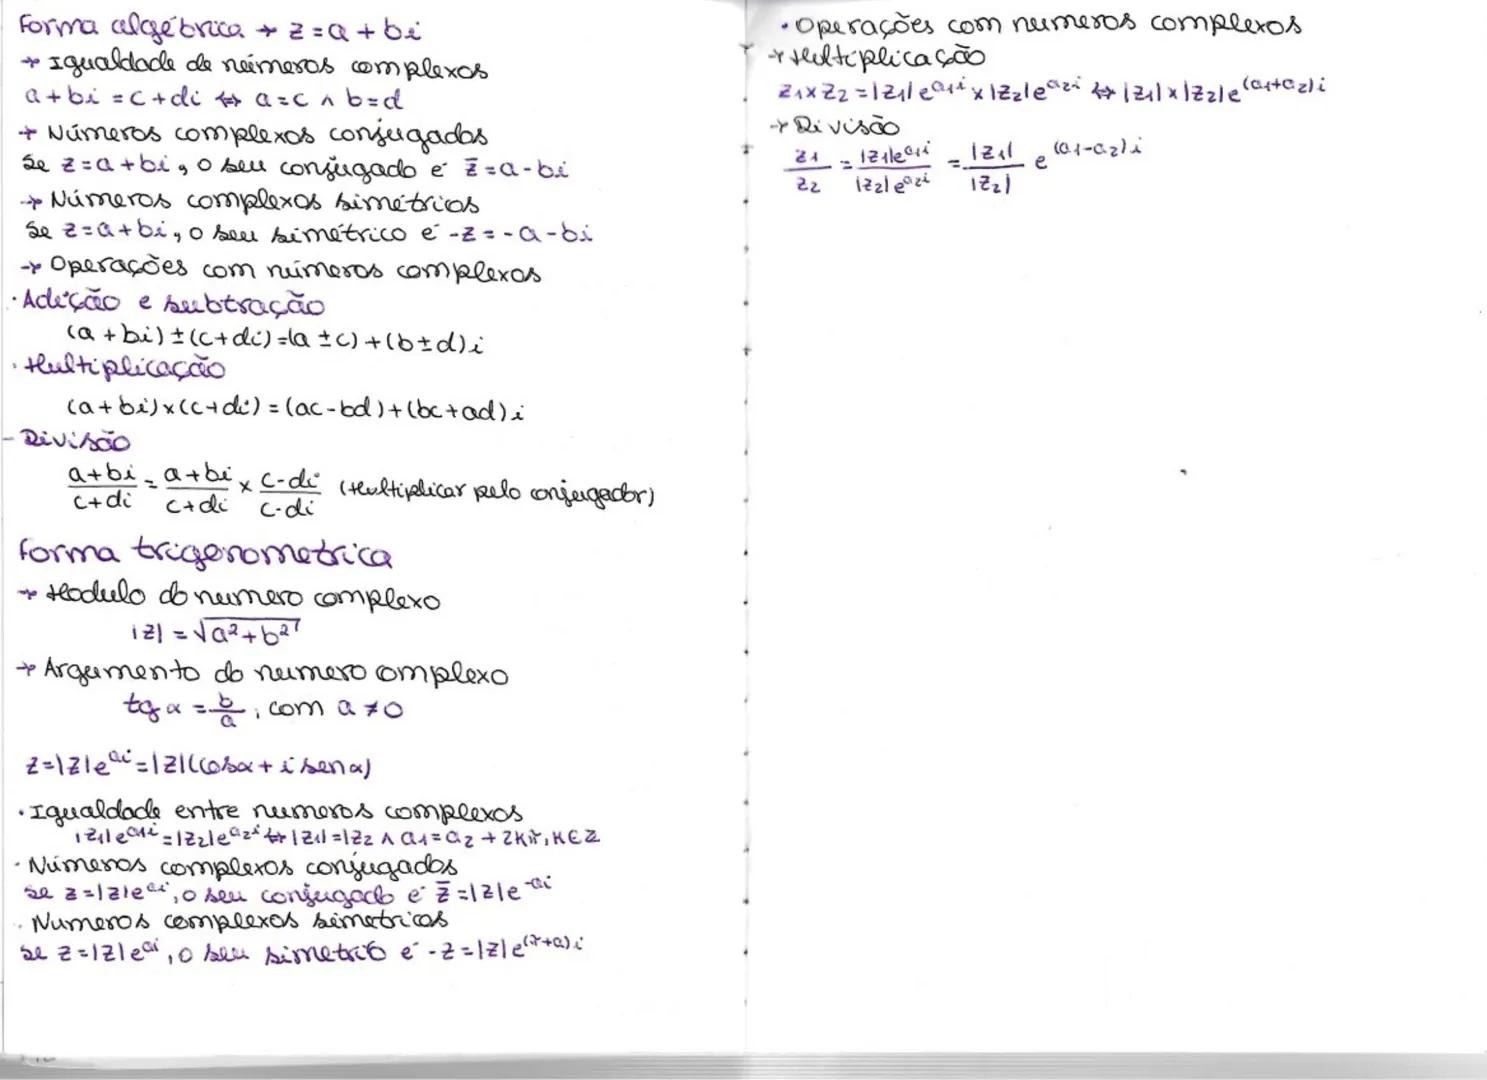 Forma algébrica → z = a + bi
→ Igualdade de números complexos
a + bi = c + di ⇔ a = c ∧ b = d
→ Números complexos conjugados
Se z = a + bi, o seu conjugado é z̄ = a - bi
→ Números complexos simétrios
Se z = a + bi, o seu simétrico é -z = -a - bi
→ Operações com números complexos
· Adição e subtração
(a + bi) ± (c + di) = (a ± c) + (b ± d)i
· Multiplicação
(a + bi) × (c + di) = (ac - bd) + (bc + ad)i
- Divisão
a+bi/c+di = a+bi/c+di × c-di/c-di (Multiplicar pelo conjugador)
Forma trigonometrica
→ Modulo do numero complexo
|z| = √a² + b²
→ Argumento do numero complexo
tg α = b/a, com a ≠ 0
z = |z|e^αi = |z|(cosα + i senα)
· Igualdade entre numeros complexos
|z1|e^α1i = |z2|e^α2i ⇔ |z1| = |z2 ∧ α1 = α2 + 2Kπ, K ∈ Z
· Números complexos conjugados
se z = |z|e^αi, o seu conjugado é z̄ = |z|e^-αi
· Numeros complexos simetricos
se z = |z|e^αi, o seu simetrico é -z = |z|e^(π+α)i
· Operações com numeros complexos
→ Multiplicação
z1 × z2 = |z1|e^α1i × |z2|e^α2i ⇔ |z1| × |z2|e^(α1+α2)i
→ Divisão
z1/z2 = |z1|e^α1i/|z2|e^α2i = |z1|/|z2| e^(α1-α2)i